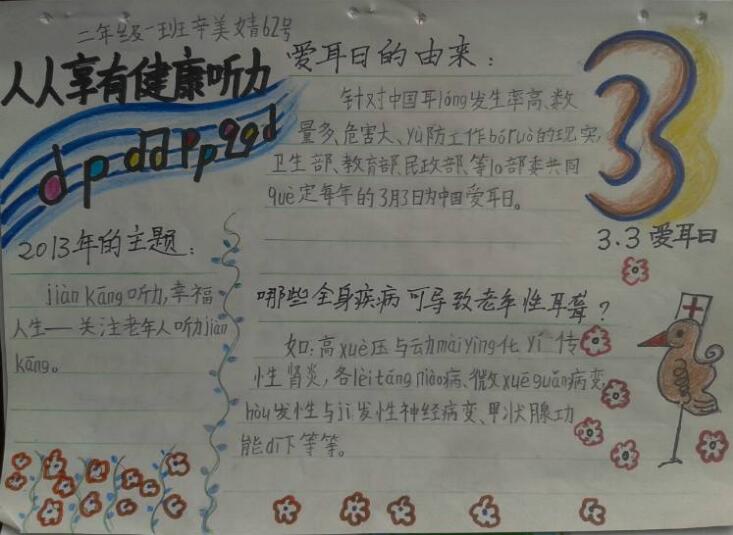 二年级一班辛美婧62号
人人享有健康听力
爱耳日的由来：
针对中国耳lóng发生率高、数
量多、危害大、yù防工作bóruò的现实,
卫生部、教育部、民政部、等10部委共同
què定每年的3月3日为中国爱耳日。
3.3 爱耳日
2013年的主题：
jiàn kāng听力,幸福
人生——关注老年人听力jiàn
kāng。
哪些全身疾病可导致老年性耳聋？
如：高xuè压与动mài yìng化 yí传
性肾炎，各lèi táng niào病、微xuè guǎn病变,
hòu发性与jì发性神经病变、甲状腺功
能dī下等等。